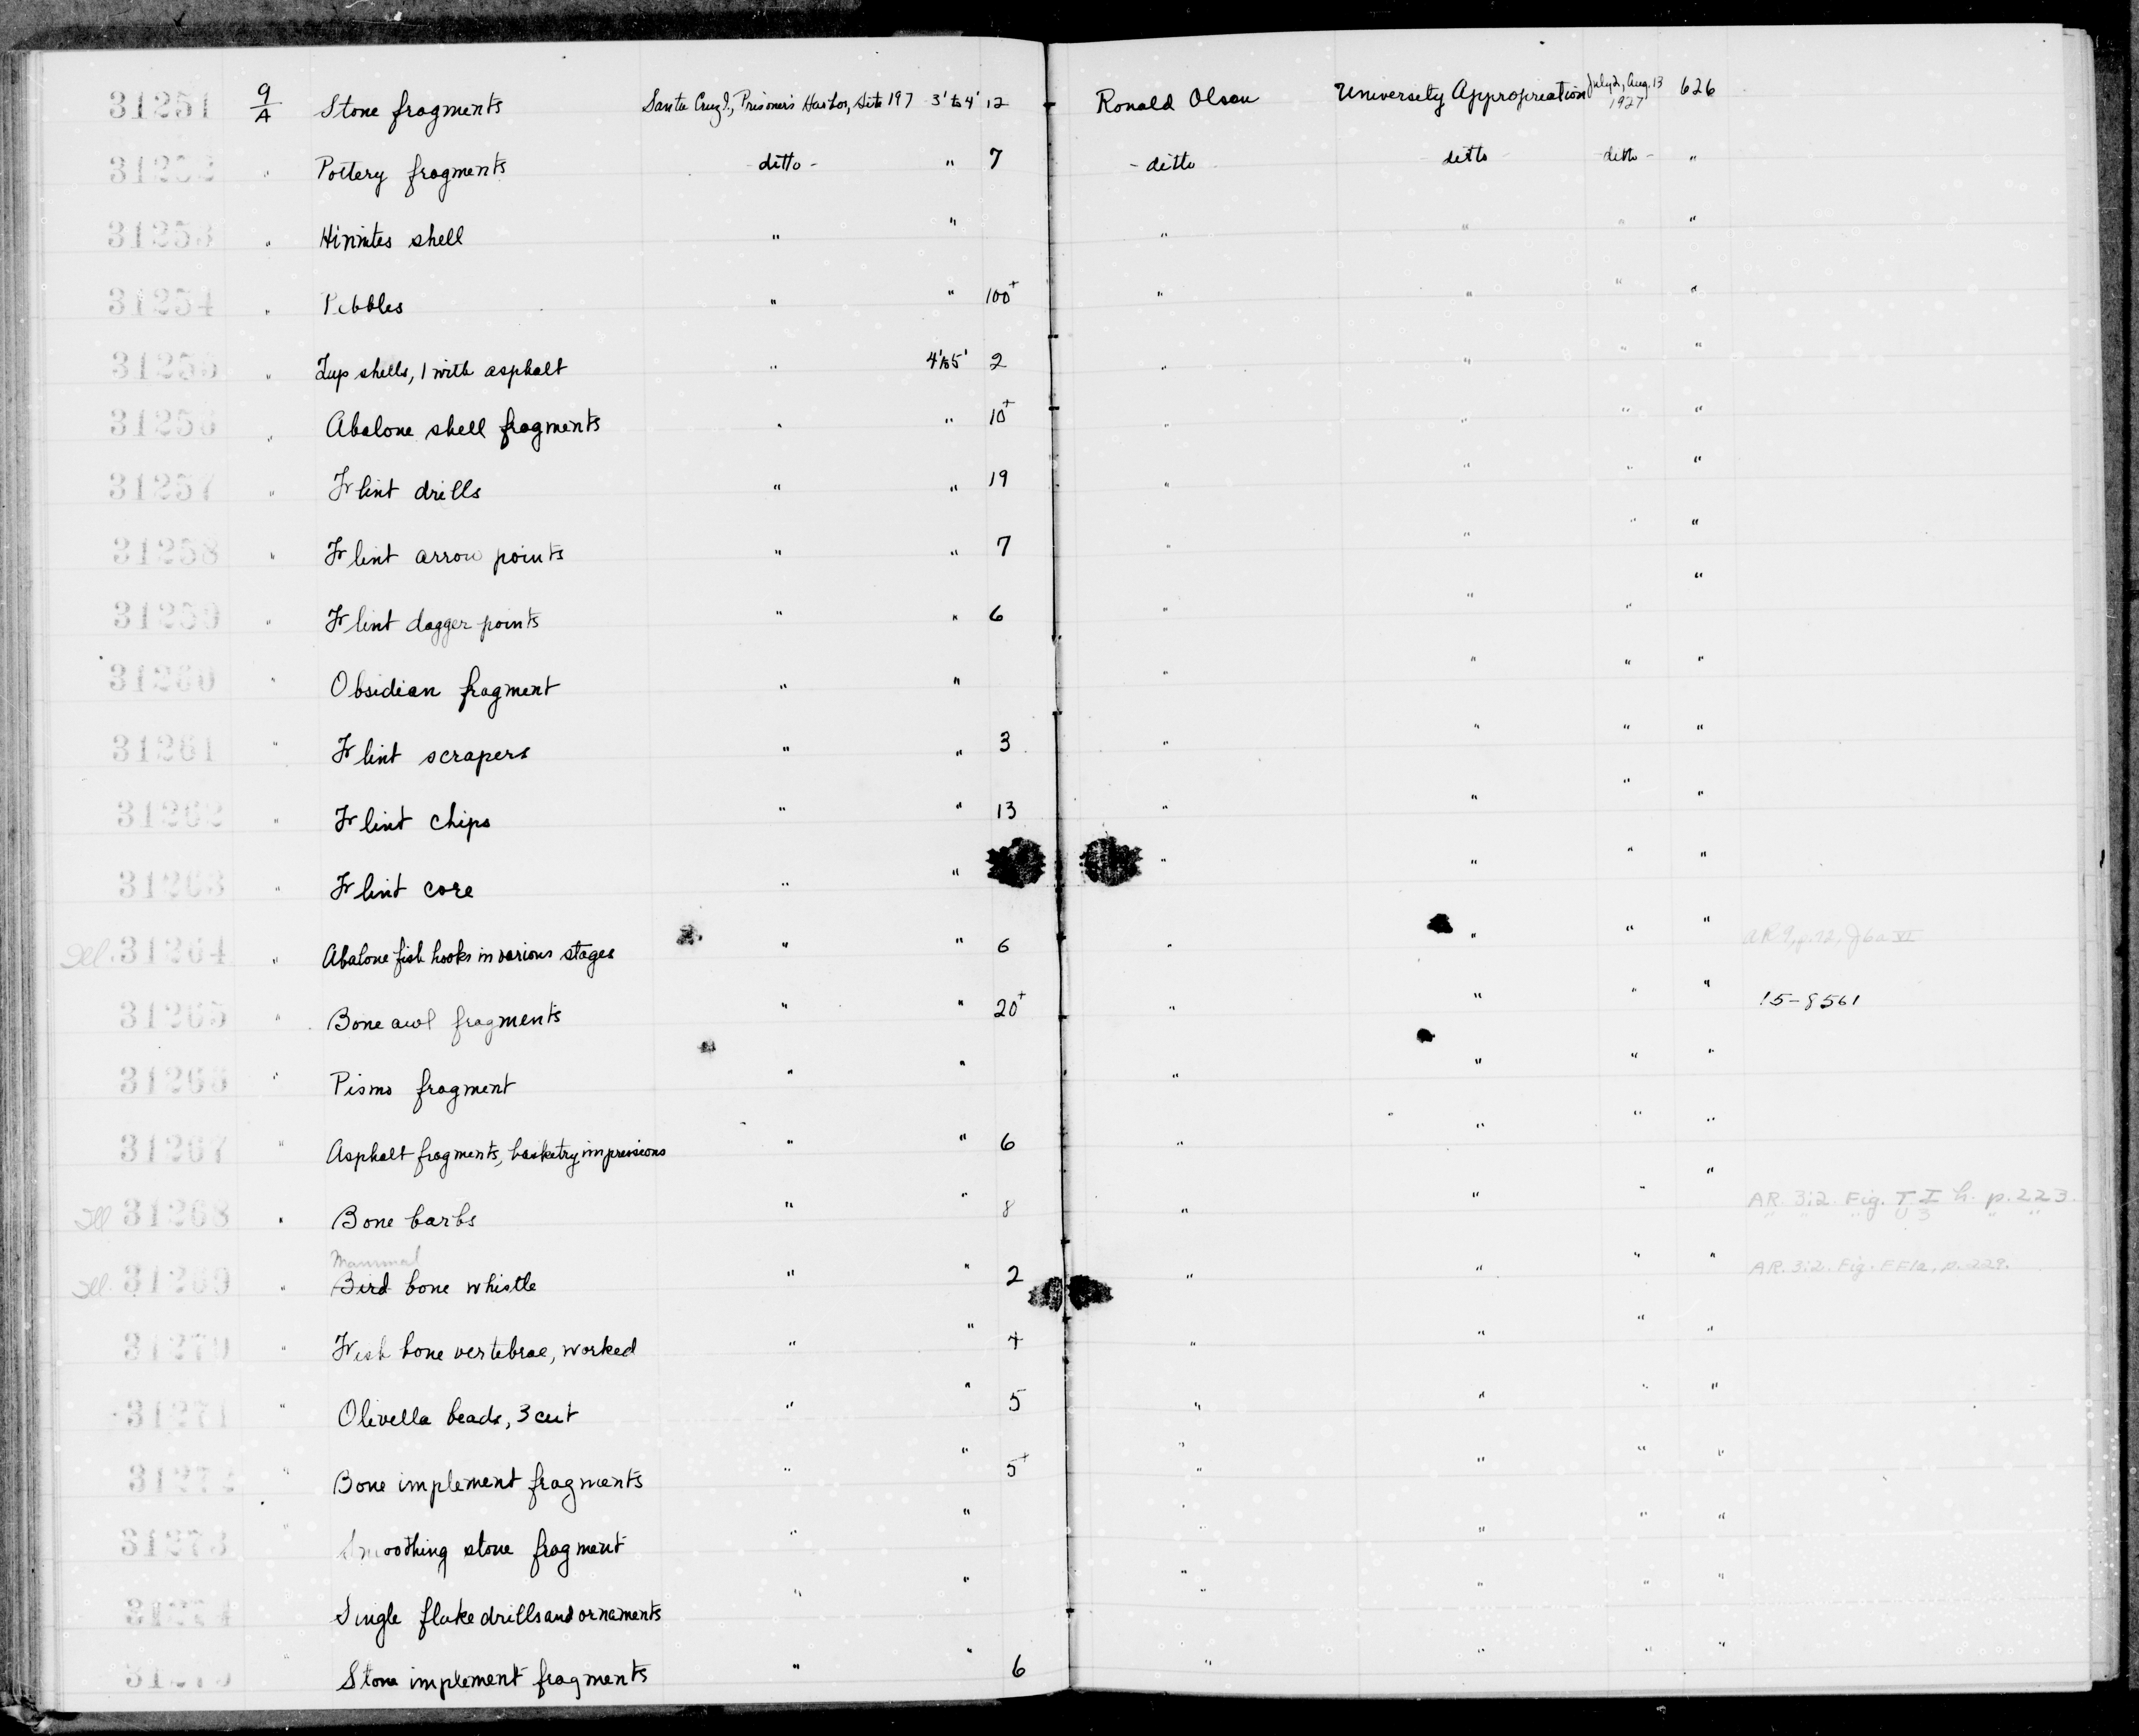 31251 9/A Stone fragments Santa Cruz I., Prisoner's Harbor, Site 197 3' to 4' 12 Ronald Olson University Appropriation July 2, Aug. 13 1927 626
31252 " Pottery fragments - ditto - " 7 - ditto ditto ditto - "
31253 " Hinnites shell " " " " " "
31254 " Pebbles " " 100+ " " " "
31255 " Cup shells, 1 with asphalt " 4' to 5' 2 " " " "
31256 " Abalone shell fragments " " 10+ " " " "
31257 " Flint drills " " 19 " " " "
31258 " Flint arrow points " " 7 " " " "
31259 " Flint dagger points " " 6 " " " "
31260 " Obsidian fragment " " " " " "
31261 " Flint scrapers " " 3 " " " "
31262 " Flint chips " " 13 " " " "
31263 " Flint core " " " " " "
Ill. 31264 " Abalone fish hooks in various stages " " 6 " " " " AR 9, p.12,
31265 " Bone awl fragments " " 20+ " " " " 15-8561
31266 " Pismo fragment " " " " " "
31267 " Asphalt fragments, basketry impressions " " 6 " " " "
Ill 31268 " Bone barbs " " 8 " " " " AR. 3:2. Fig. T I h. p. 223.
" " " U 3 " "
Mammal
Ill. 31269 " Bird bone whistle " " 2 " " " " AR. 3:2. Fig. FF1a, p. 229.
31270 " Fish bone vertebrae, worked " " 4 " " " "
31271 " Olivella beads, 3 cut " " 5 " " " "
31272 " Bone implement fragments " " 5+ " " " "
31273 " Smoothing stone fragment " " " " " "
31274 Single flake drills and ornaments " " " " " "
31275 " Stone implement fragments " " 6 " " " "